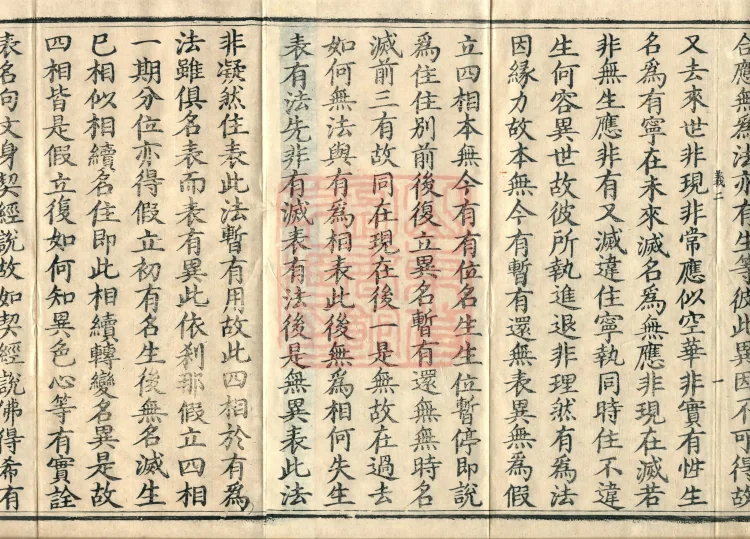 合應無爲法亦有生等彼此異因不可得故
義二 一
又去來世非現非常應似空華非實有性生
名爲有寧在未來滅名爲無應非現在滅若
非無生應非有又滅違住寧執同時住不違
生何容異世故彼所執進退非理然有爲法
因緣力故本無今有暫有還無表異無爲假
立四相本無今有有位名生生位暫停即說
爲住住別前後復立異名暫有還無無時名
滅前三有故同在現在後一是無故在過去
如何無法與有爲相表此後無爲相何失生
表有法先非有滅表有法後是無異表此法
非凝然住表此法暫有用故此四相於有爲
法雖俱名表而表有異此依刹那假立四相
一期分位亦得假立初有名生後無名滅生
已相似相續名住即此相續轉變名異是故
四相皆是假立復如何知異色心等有實詮
表名句文身契經說故如契經說佛得希有